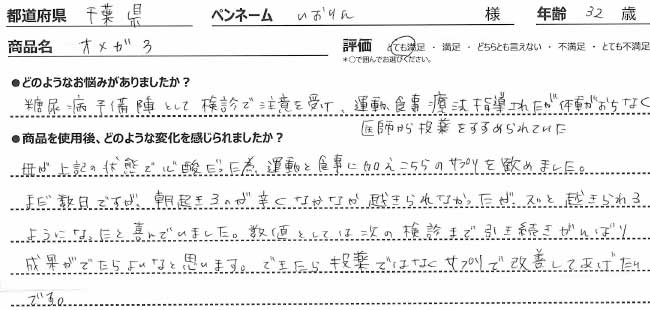 都道府県 千葉県 ペンネーム いおりん 様 年齢 32 歳
商品名 オメガ3 評価 とても満足 ・ 満足 ・ どちらとも言えない ・ 不満足 ・ とても不満足
*○で囲んでお選びください。
●どのようなお悩みがありましたか?
糖尿病予備陣として検診で注意を受け、運動、食事療法指導されたが体重がおちなく
医師から投薬をすすめられていた
●商品を使用後、どのような変化を感じられましたか?
母が上記の状態で心配だった為、運動と食事に加えこちらのサプリを飲めました。
まだ数日ですが、朝起きるのが辛くなかなか起きられなかったが、スッと起きられる
ようになったと喜んでいました。数値としては次の検診まで引き続きがんばり
成果がでたらよいなと思います。できたら投薬ではなくサプリで改善してあげたい
です。